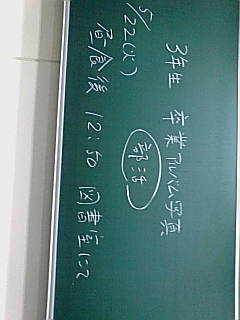 3年生 卒業アルバム写真
部活
5/22(火)
昼食後 12:50 図書室にて